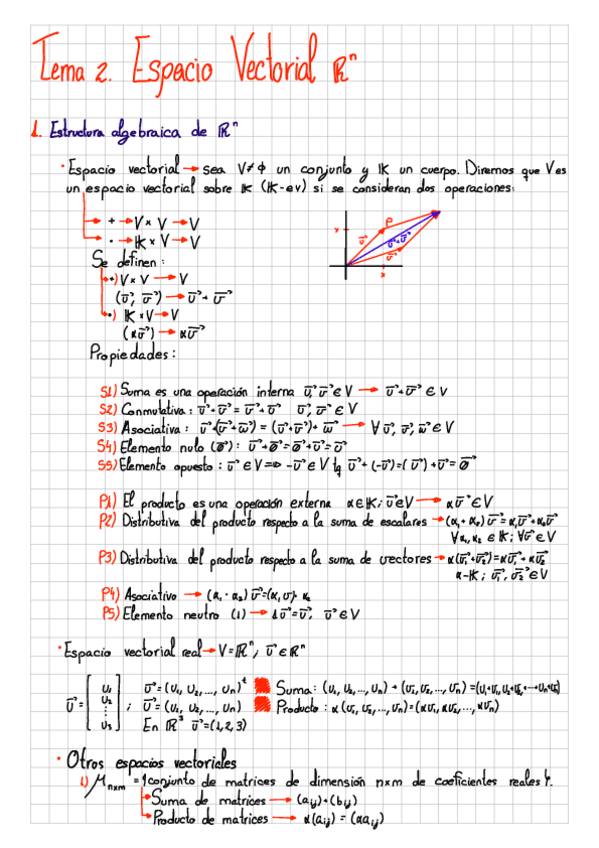 Tema 2. Espacio Vectorial ℝⁿ
1. Estructura algebraica de ℝⁿ
· Espacio vectorial → sea V≠∅ un conjunto y 𝕂 un cuerpo. Diremos que V es
un espacio vectorial sobre 𝕂 (𝕂-ev) si se consideran dos operaciones:
+ → V×V → V
· → 𝕂×V → V
Se definen:
+) V×V → V
(u⃗, v⃗) → u⃗+v⃗
·) 𝕂×V → V
(αv⃗) → αv⃗
Propiedades:
S1) Suma es una operación interna u⃗, v⃗ ∈ V → u⃗+v⃗ ∈ V
S2) Conmutativa: u⃗+v⃗ = v⃗+u⃗ u⃗, v⃗ ∈ V
S3) Asociativa: u⃗+(v⃗+w⃗) = (u⃗+v⃗)+w⃗ → ∀ u⃗, v⃗, w⃗ ∈ V
S4) Elemento nulo (0⃗): u⃗+0⃗=0⃗+u⃗=u⃗
S5) Elemento opuesto: u⃗ ∈ V => -u⃗ ∈ V tq u⃗+(-u⃗)=(u⃗)+u⃗=0⃗
P1) El producto es una operación externa α∈𝕂; v⃗∈V → αv⃗ ∈ V
P2) Distributiva del producto respecto a la suma de escalares → (α₁+α₂)v⃗=α₁v⃗+α₂v⃗
∀α₁, α₂ ∈ 𝕂; ∀v⃗ ∈ V
P3) Distributiva del producto respecto a la suma de vectores → α(v⃗₁+v⃗₂)=αv⃗₁+αv⃗₂
α-𝕂; v⃗₁, v⃗₂ ∈ V
P4) Asociativo → (α₁·α₂)v⃗=(α₁v⃗)·α₂
P5) Elemento neutro (1) → 1v⃗=v⃗, v⃗ ∈ V
· Espacio vectorial real → V=ℝⁿ, v⃗ ∈ ℝⁿ
v⃗ = [u₁ u₂ ⋮ u₃]; v⃗=(u₁, u₂, ..., uₙ)ᵗ Suma: (u₁, u₂, ..., uₙ) + (v₁, v₂, ..., vₙ) =(u₁+v₁, u₂+v₂, ..., uₙ+vₙ)
v⃗=(u₁, u₂, ..., uₙ) Producto: α(v₁, v₂, ..., vₙ)=(αv₁, αv₂, ..., αvₙ)
En ℝ³ v⃗=(1,2,3)
· Otros espacios vectoriales
1) M n×m = {conjunto de matrices de dimensión n×m de coeficientes reales}.
Suma de matrices → (aᵢⱼ)+(bᵢⱼ)
Producto de matrices → α(aᵢⱼ) = (αaᵢⱼ)